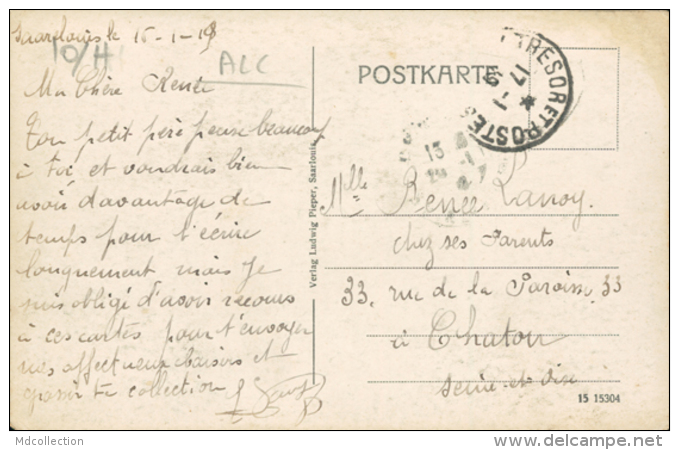 Saarlouis le 15-1-19
10/H
ALC
Ma Chère Renée
Ton petit père pense beaucoup
à toi et voudrais bien
avoir davantage de
temps pour t'écrire
longuement mais je
suis obligé d'avoir recours
à ces cartes pour t'envoyer
mes affectueux baisers et
grossir ta collection
POSTKARTE
TRESOR ET POSTES
17-1
Verlag Ludwig Pieper, Saarlouis
Mlle Renée Lanroy
chez ses Parents
33, rue de la Paroisse, 33
à Chatou
Seine-et-Oise
15 15304
Mdcollection
www.delcampe.net